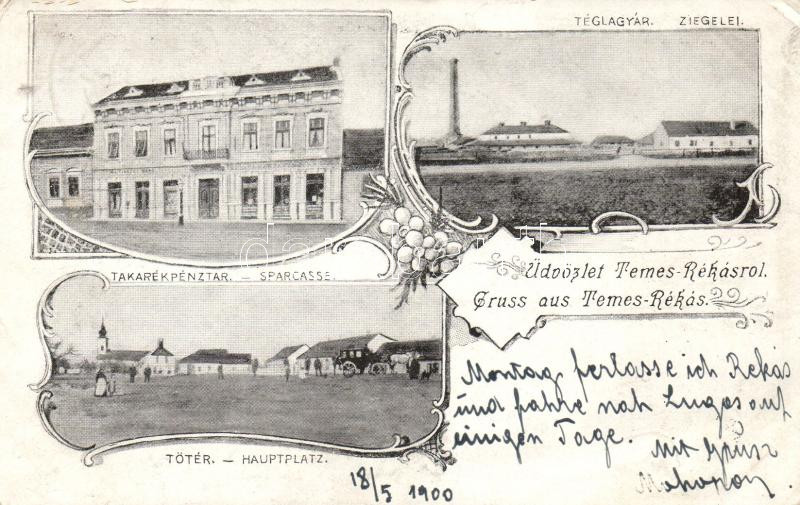 TÉGLAGYÁR. ZIEGELEI.
TAKARÉKPÉNZTÁR. — SPARCASSE.
Üdvözlet Temes-Rékásrol.
Gruss aus Temes-Rékás.
Montag verlasse ich Rekas
und fahre nah Lugos auf
einigen Tage.
Mit Grüsz
TÖTÉR. — HAUPTPLATZ.
18/5 1900
darabanth